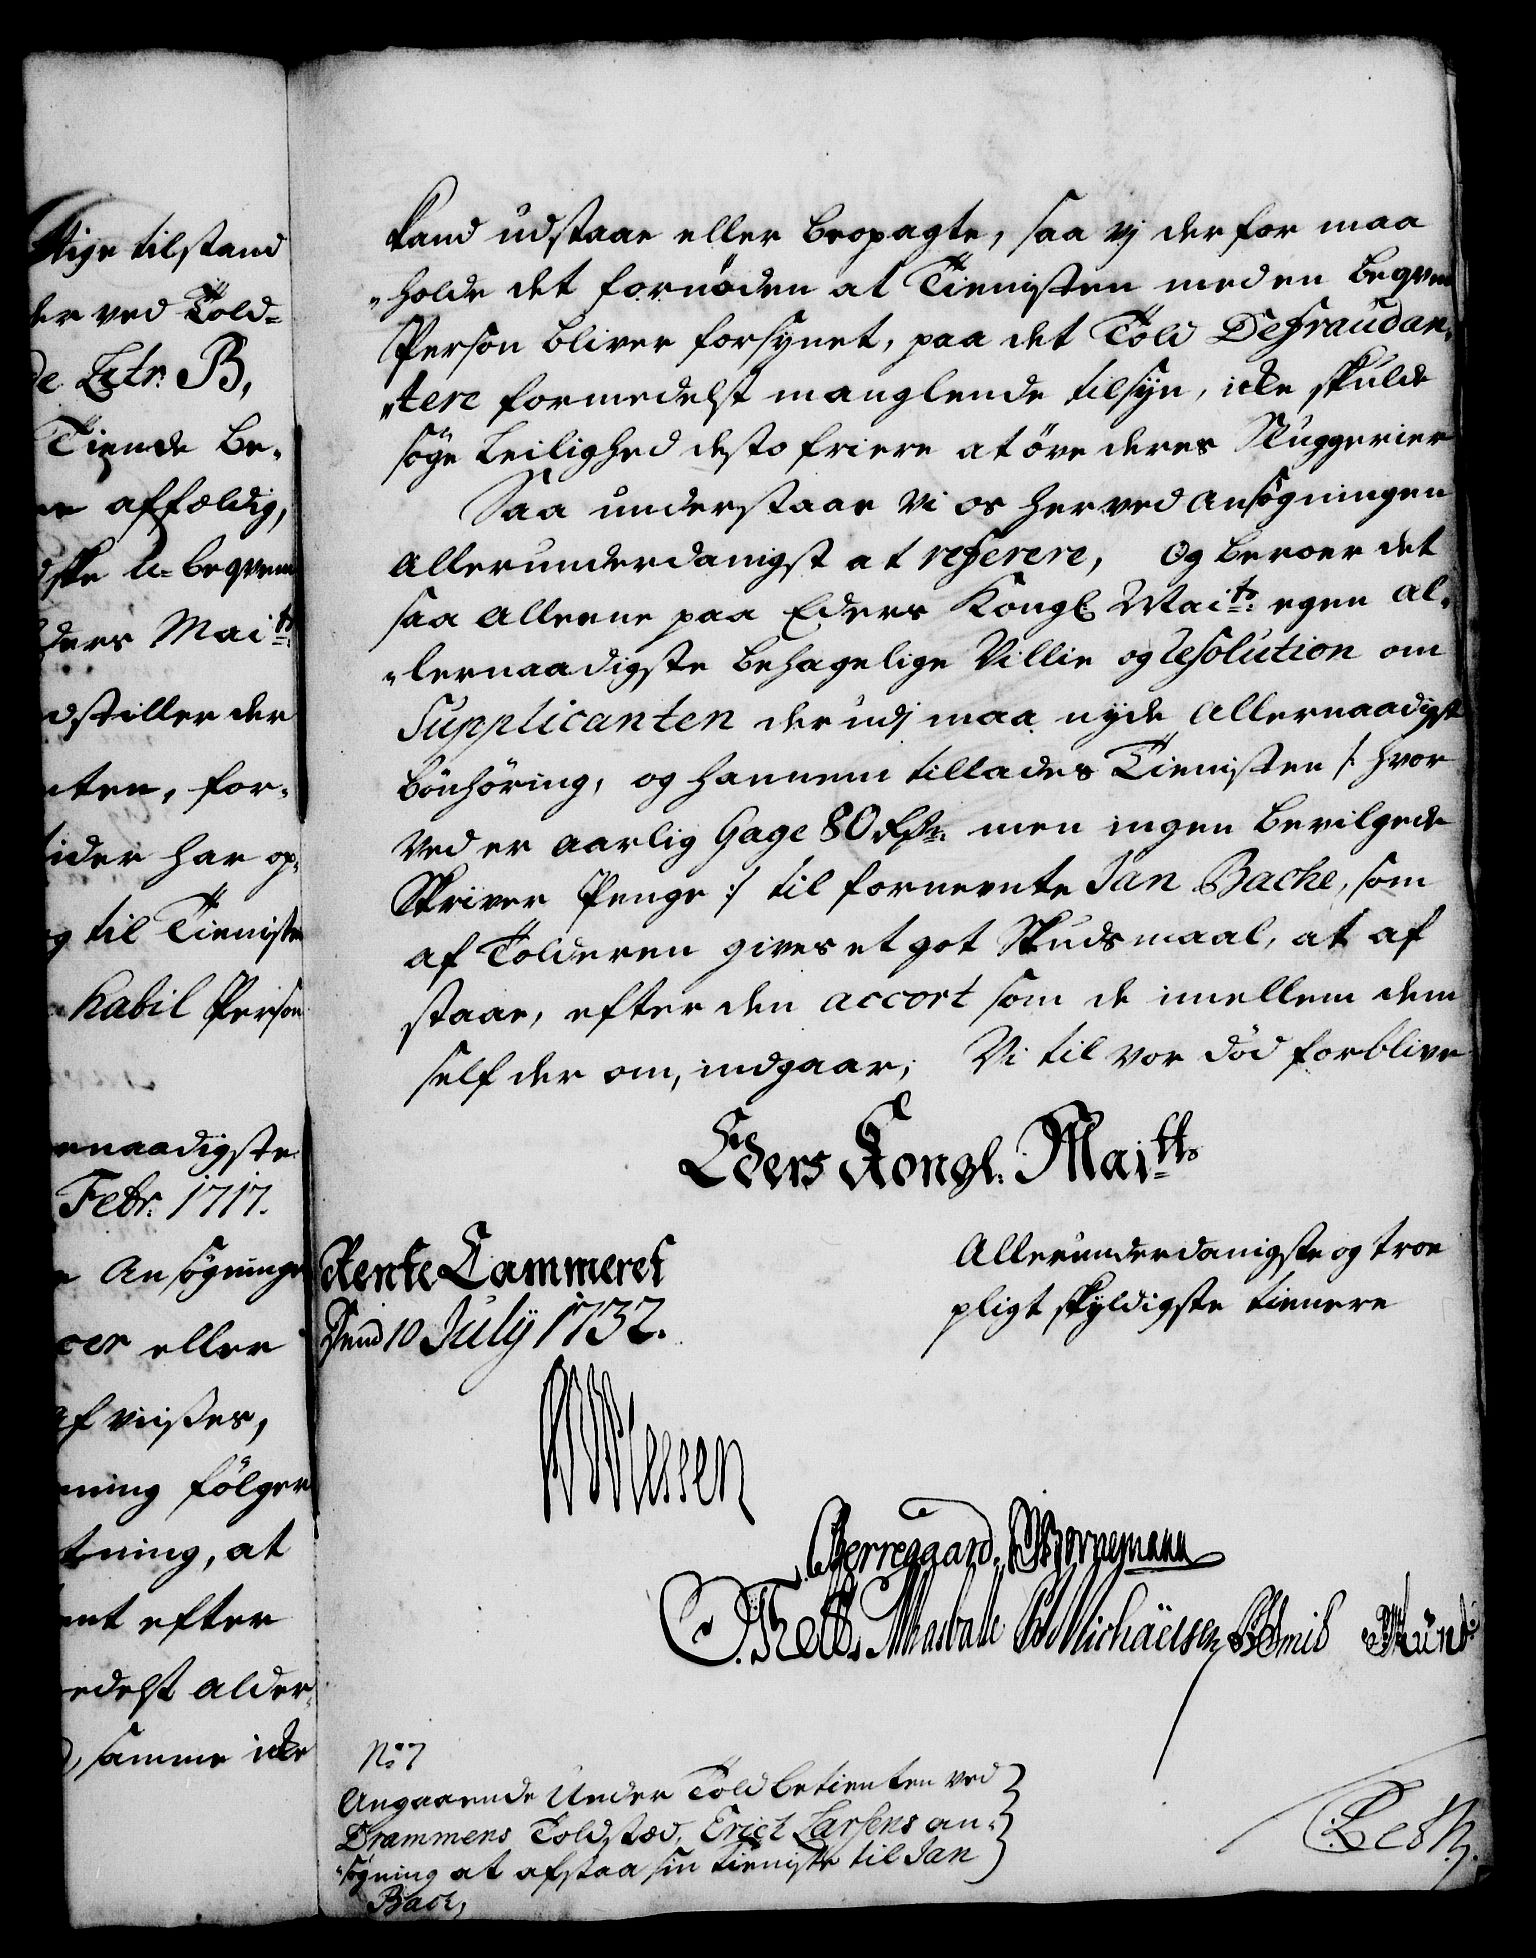 ttige tilstand
der ved Told-
de Litr: B,
Tiende be-
affældig,
dske u-beqvem
Eders Maitt:
dstiller der
nten, for-
tider har op-
og til Tieniste
habil Person
ernaadigste
Febr: 1717.
Ansøgninge
cer eller
af viises,
ning følger
tning, at
nt efter
edelst alder-
, samme icke
kand udstaae eller beopagte, saa vj derfor maa
"holde det fornøden at Tienisten med en beqvem
Person bliver forsynet, paa det Told Defraudan-
"tere formedelst manglende tilsÿn, icke skulde
søge Leilighed desto friere at øve deres Sluggerier
Saa understaae vi os herved ansøgningen
allerunderdanigst at referere, Og beroer det
saa alleene paa Eders Kongl: Maits: egen al-
"lernaadigste behagelige Villie og Resolution om
Supplicanten der udj maa nÿde allernaadigst
bønhøring, og hannem tillades Tienisten /: hvor
ved er aarlig Gage 80 Rdr: men ingen bevilgede
Skriver Penge :/ til fornevnte Jan Bache, som
af Tolderen gives et got Skudsmaal, at af
staae, efter den accort som de imellem dem
self der om, indgaar; Vi til vor død forblive
Eders Kongl: Maitts
Allerunderdanigste og troe
pligt skÿldigste tienere
Rente Cammeret
Dend 10 Julÿ 1732.
Plessen
Bierregaard. Bornemann
Thell. Michäelsen Smid Münt
No: 7
Angaaende Under Told betienten ved
Drammens Toldstæd, Erict Larsens an-
"søgning at afstaa sin tieniste til Jan
Bach,